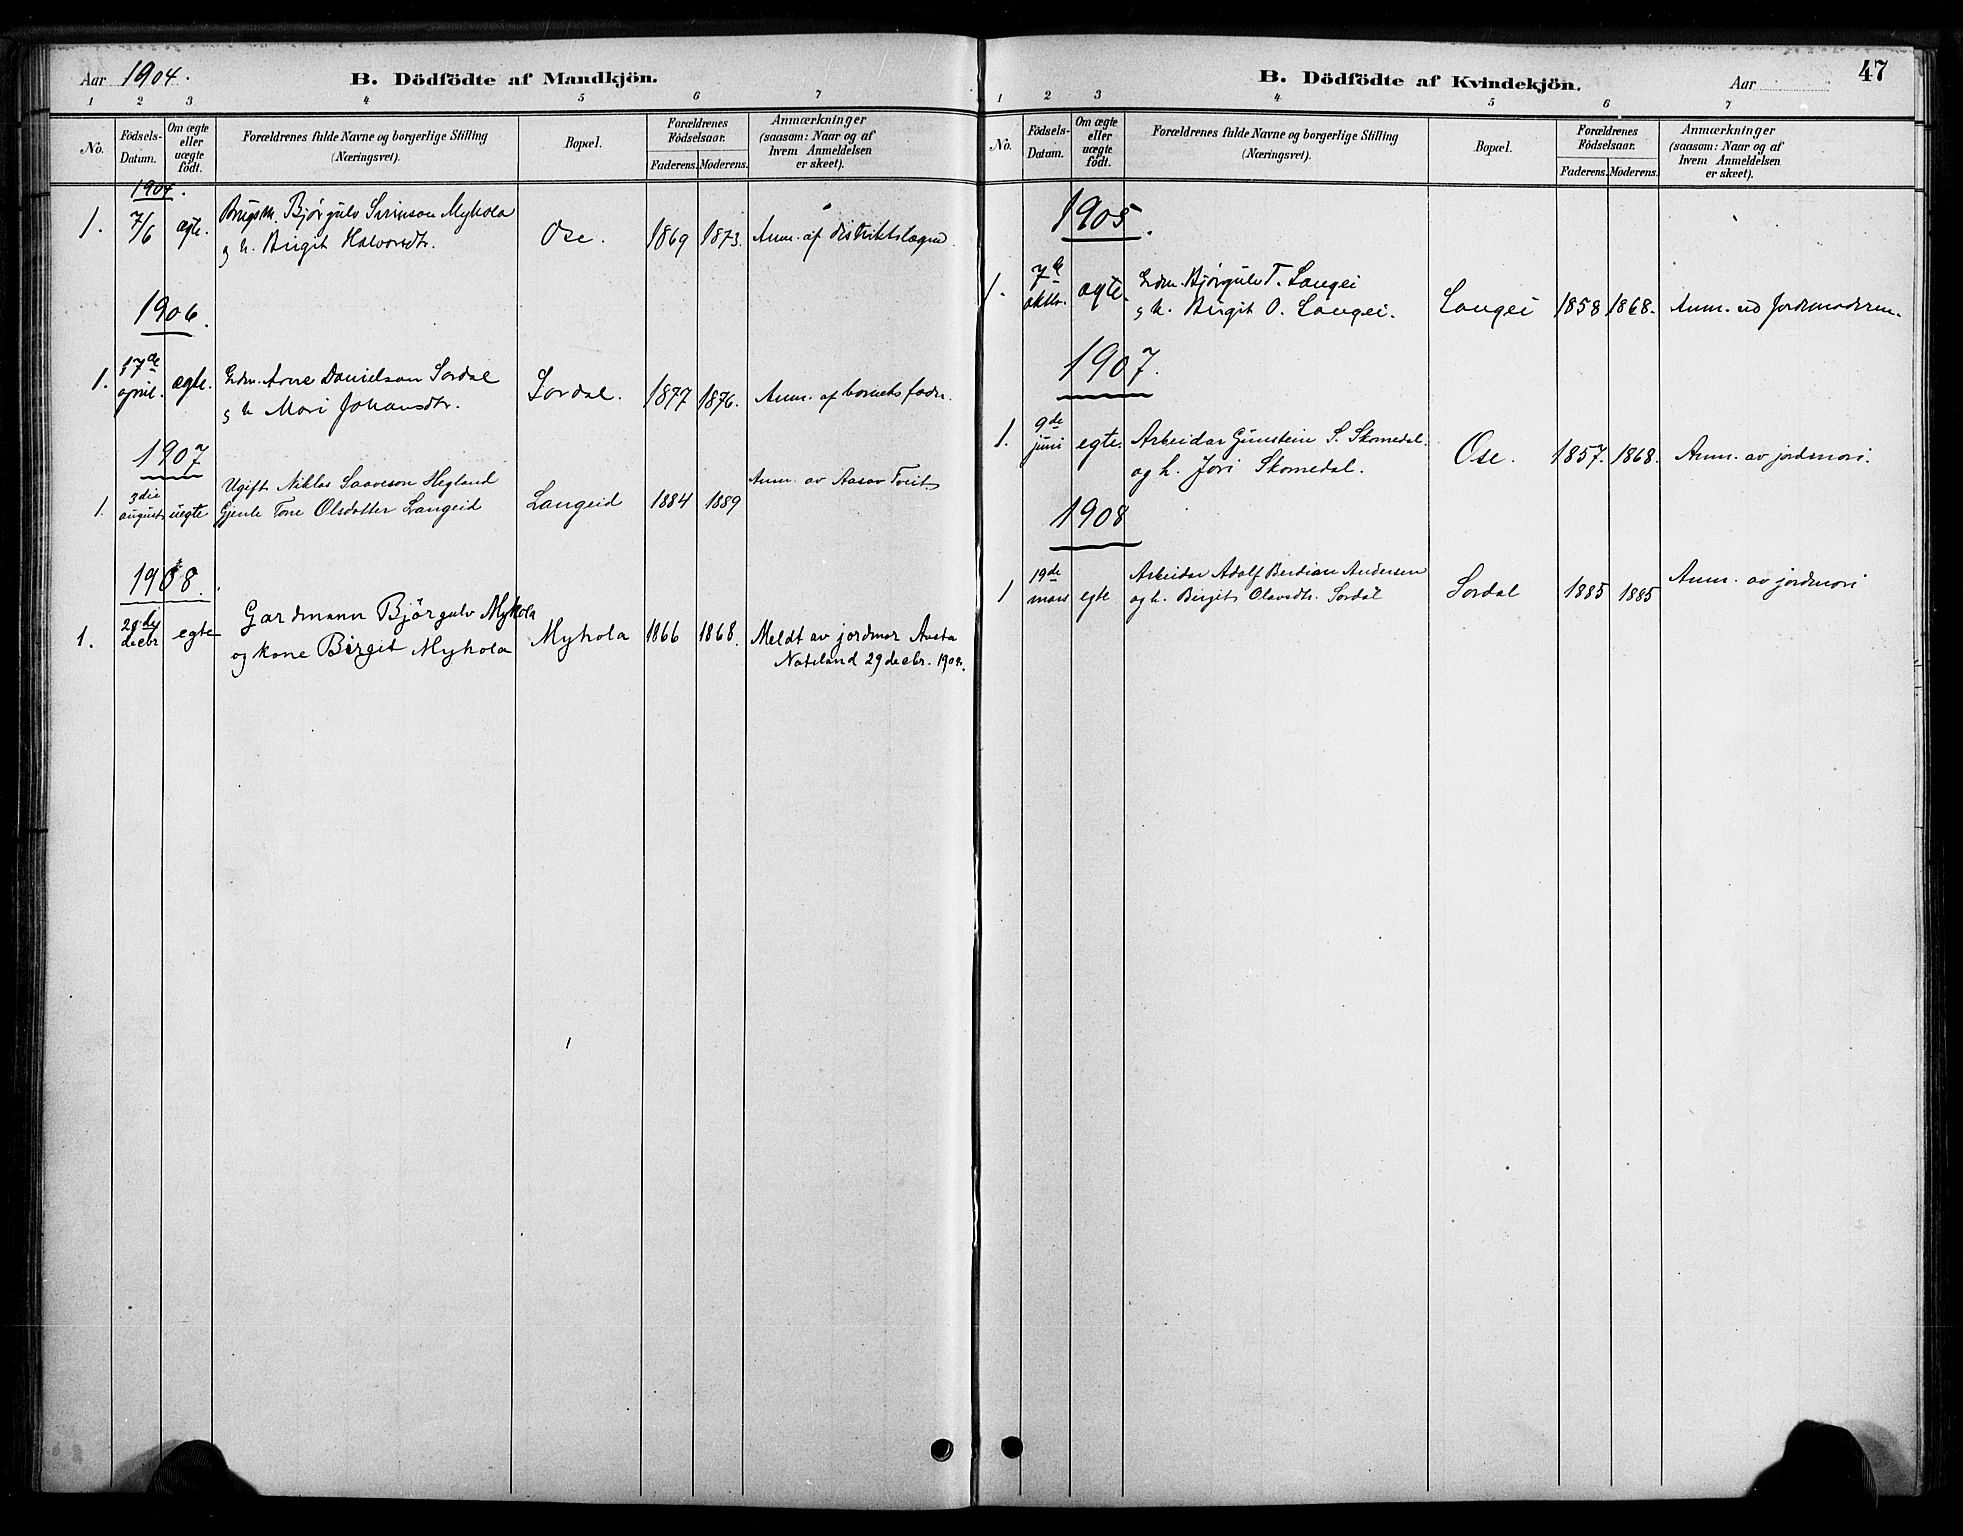 Aar 1904.
B. Dödfödte af Mandkjön.
1 2 3 4 5 6 7
No.
Födsels-Datum.
Om ægte eller uægte født.
Forældrenes fulde Navne og borgerlige Stilling (Næringsvei).
Bopæl.
Forældrenes Födselsaar.
Faderens. Moderens.
Anmærkninger (saasom: Naar og af hvem Anmeldelsen er skeet).
1904.
1. 7/6 ægte. Brugsm. Bjørgulv Sveinson Myhola
og h. Birgit Halvorsdtr. Ose. 1869 1873. Anm. af distriktslægen.
1906.
1. 17de april. ægte. Grdm. Arne Danielson Sordal
og h Mari Johansdtr. Sordal. 1877 1876. Anm. af barnets fader.
1907
1. 3die august uegte Ugift Niklas Saaveson Hegland
Gjente Tone Olsdatter Langeid Langeid 1884 1889 Anm. av Aasav Tveit
1908.
1. 28de decbr egte Gardmann Bjørgulv Myhola
og kone Birgit Myhola Myhola 1866 1868. Meldt av jordmor Aasta
Nateland 29 decbr. 1908.
B. Dödfödte af Kvindekjön.
Aar
47
1 2 3 4 5 6 7
No.
Födsels-Datum.
Om ægte eller uægte födt.
Forældrenes fulde Navne og borgerlige Stilling (Næringsvei).
Bopæl.
Forældrenes Födselsaar.
Faderens. Moderens.
Anmærkninger (saasom: Naar og af hvem Anmeldelsen er skeet).
1905.
1. 7de oktbr. ægte. Grdm. Bjørgulv T. Langei
og h. Birgit O. Langei. Langei 1858 1868. Anm. ved Jordemoderen.
1907.
1. 9de juni egte. Arbeidar Gunstein S. Skomedal.
og h. Jori Skomedal. Ose. 1857. 1868. Anm. av jordmori.
1908
1 19de mars egte Arbeidar Adolf Berdian Andersen
og h. Birgit Olavsdtr. Sordal Sordal 1885 1885 Anm. av jordmori